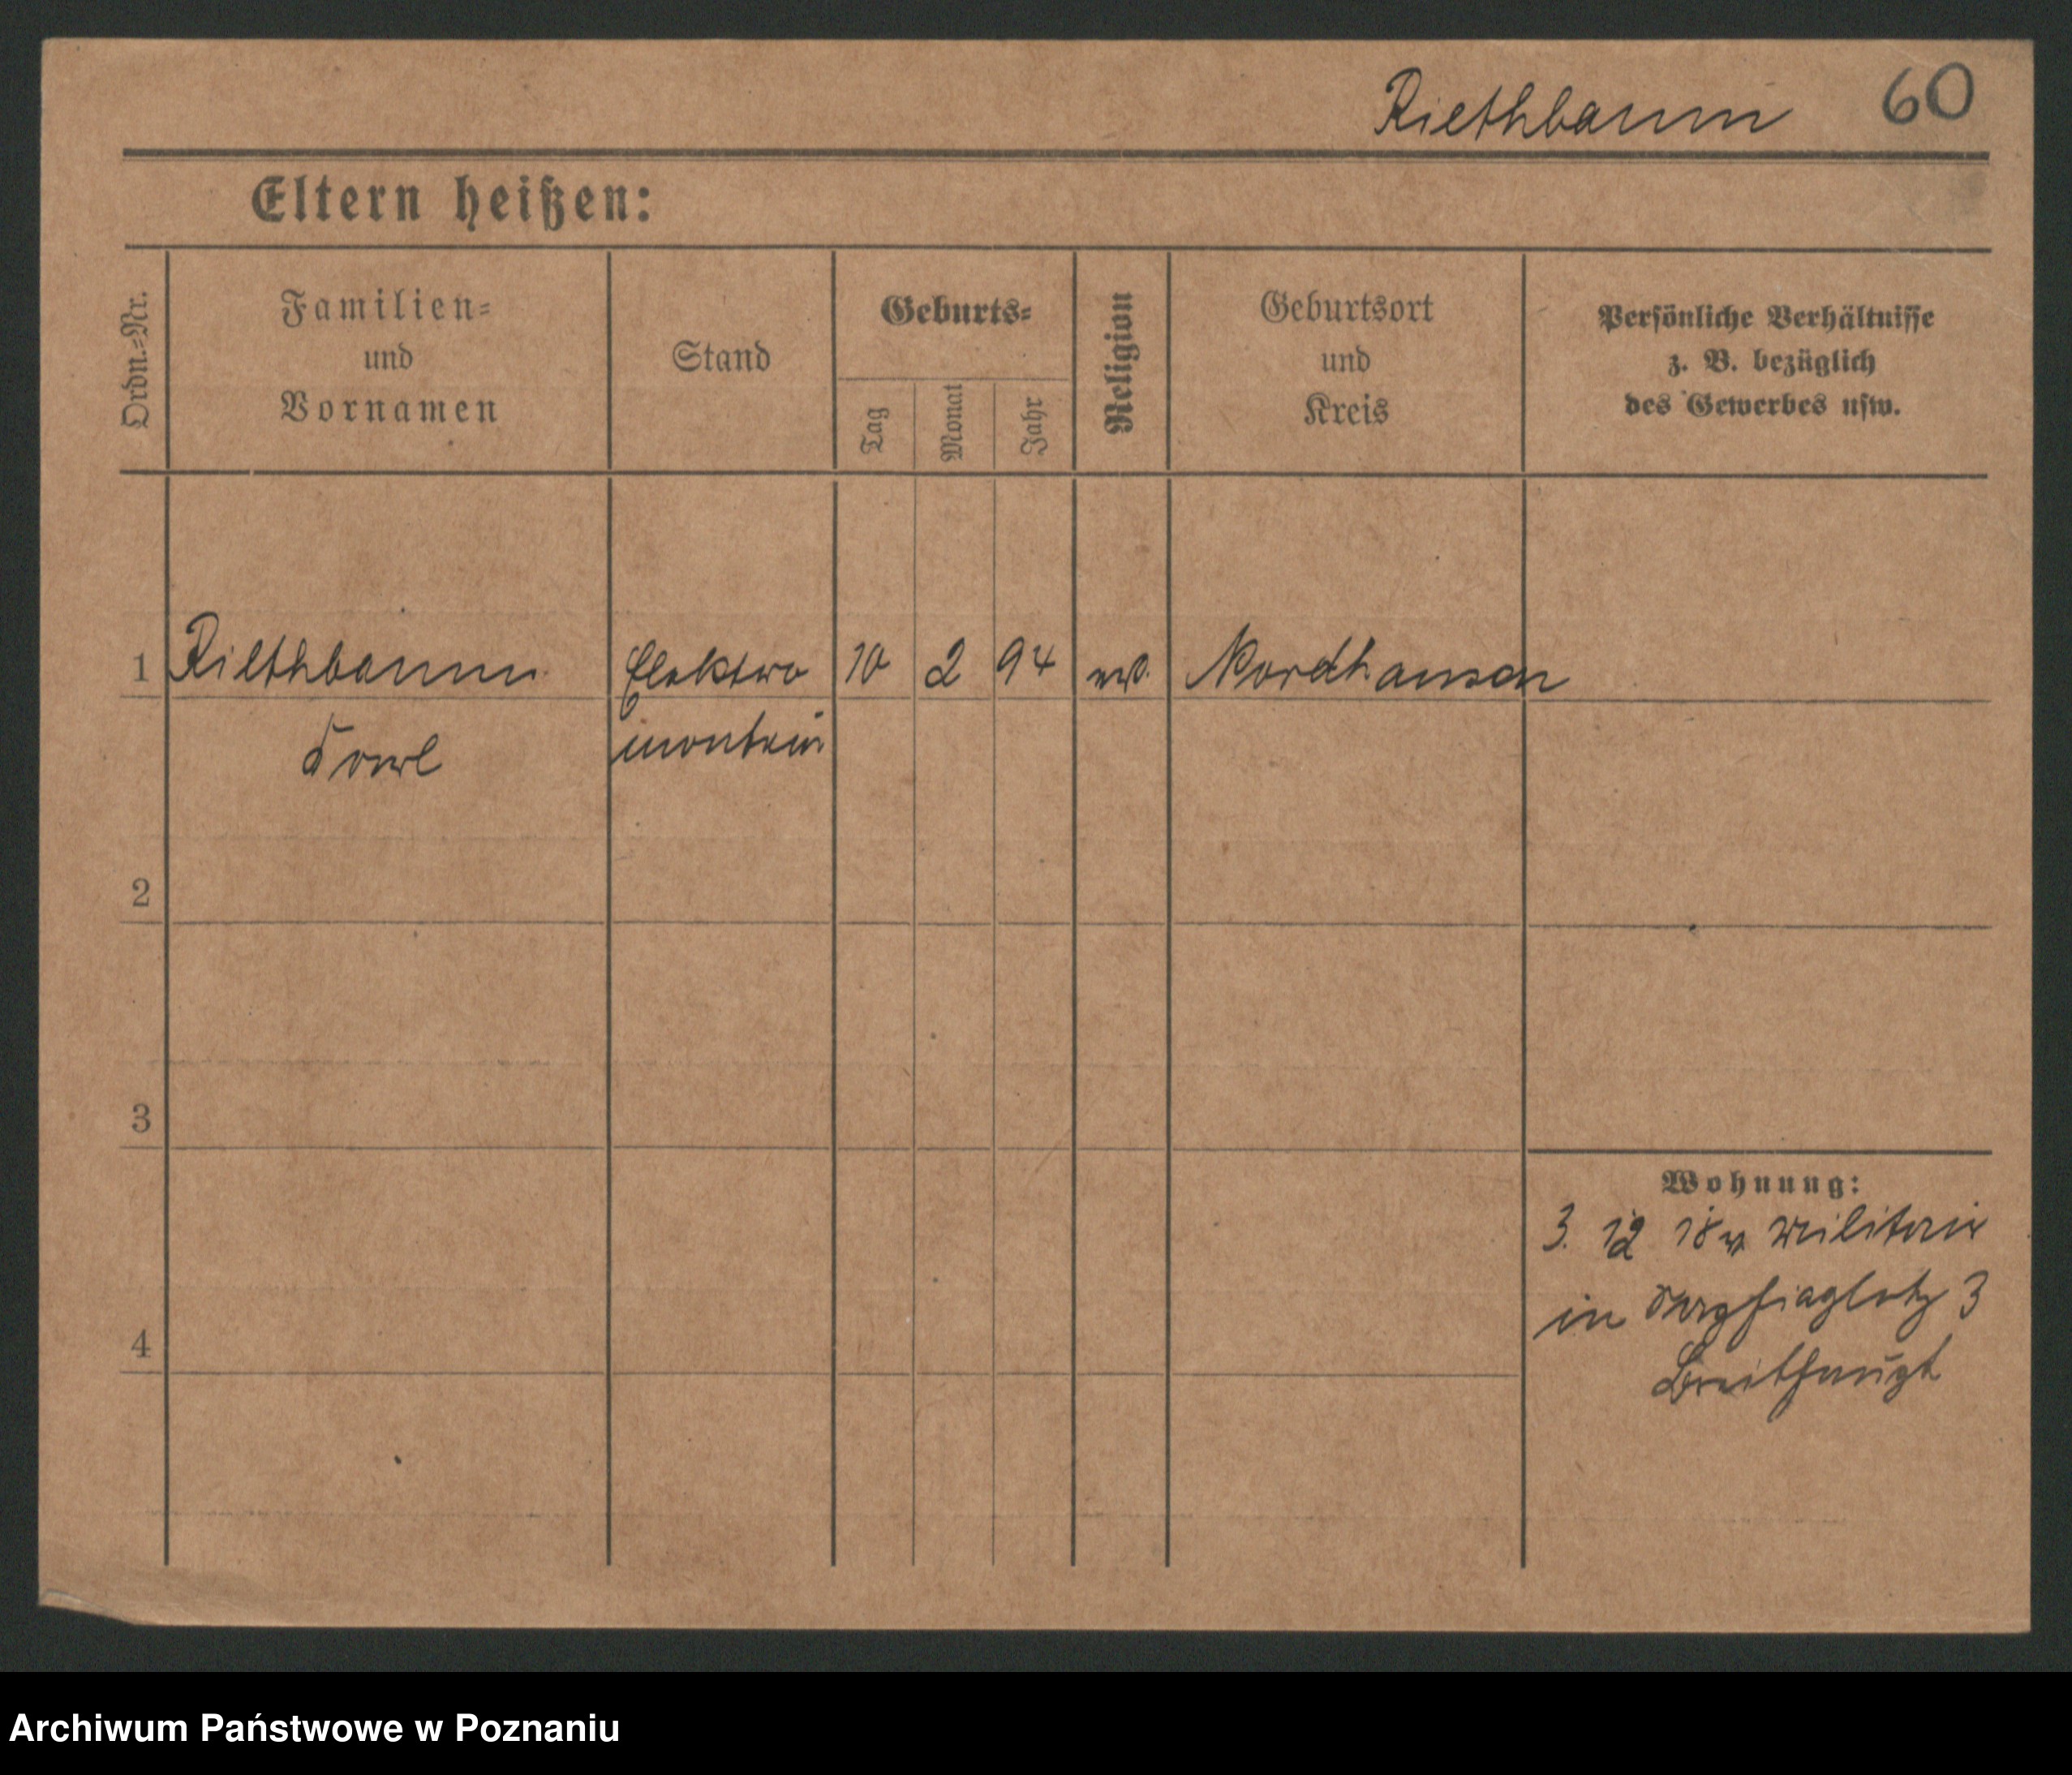 Riethbaum 60
Eltern heißen:
Ordn.-Nr.
Familien-
und
Vornamen
Stand
Geburts-
Tag
Monat
Jahr
Religion
Geburtsort
und
Kreis
Persönliche Verhältnisse
z. B. bezüglich
des Gewerbes usw.
1 Riethbaum Elektro 10 2 94 Nordhausen
Karl monteur
2
3
4
Wohnung:
3. 12 18 v. Militär
in 3
Breithaupt
Archiwum Państwowe w Poznaniu